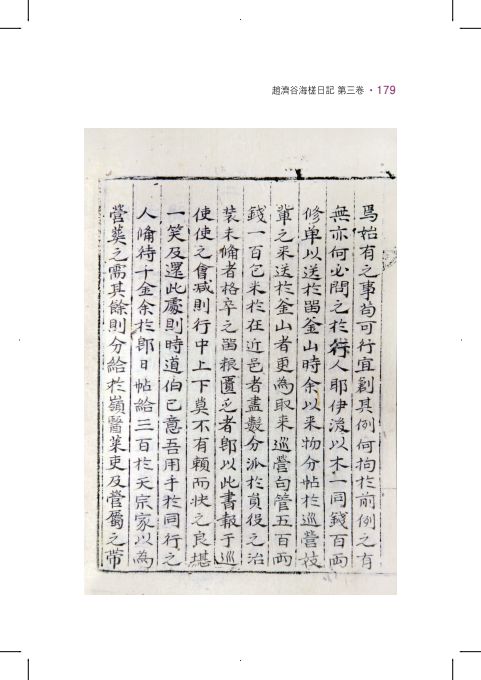 趙濟谷海槎日記 第三卷 · 179
爲始有之事苟可行宜創其例何拘於前例之有
無亦何必問之於行人耶伊後以木一同錢百兩
修單以送於留釜山時余以米物分帖於巡營校
輩之來送於釜山者更為取來巡營句管五百兩
錢一百包米於在近邑者盡數分派於員役之治
裝未備者格卒之留粮匱乏者卽以此書報于巡
使使之會减則行中上下莫不有賴而快之良堪
一笑及還此處則時道伯已意吾用手於同行之
人備待千金余於卽日帖給三百於天宗家以為
營葬之需其餘則分給於嶺醫業吏及營屬之帶